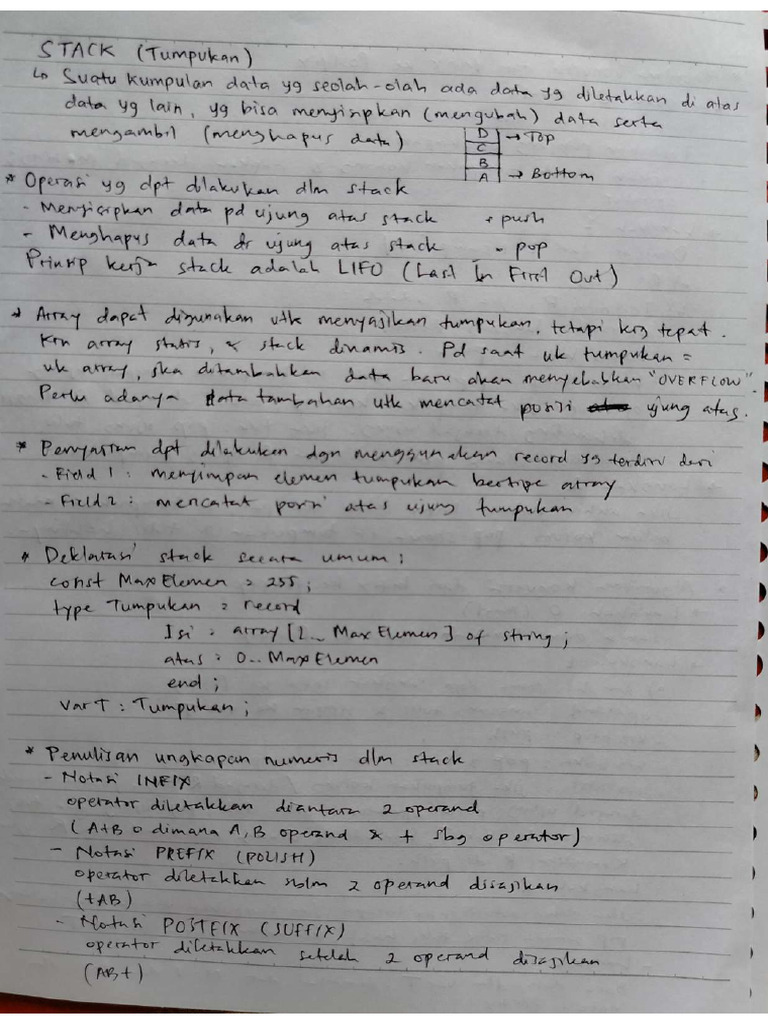 STACK (Tumpukan)
↳ Suatu kumpulan data yg seolah-olah ada data yg diletakkan di atas
data yg lain, yg bisa menyisipkan (mengubah) data serta
mengambil (menghapus data)
D → Top
C
B
A → Bottom
* Operasi yg dpt dilakukan dlm stack
- Menyisipkan data pd ujung atas stack → push
- Menghapus data dr ujung atas stack → pop
Prinsip kerja stack adalah LIFO (Last In First Out)
→ Array dapat digunakan utk menyajikan tumpukan, tetapi krg tepat.
Krn array statis, & stack dinamis. Pd saat uk tumpukan =
uk array, jika ditambahkan data baru akan menyebabkan "OVERFLOW".
Perlu adanya data tambahan utk mencatat posisi ujung atas.
* Penyajian dpt dilakukan dgn menggunakan record yg terdiri dari
- Field 1 : menyimpan elemen tumpukan bertipe array
- Field 2 : mencatat posisi atas ujung tumpukan
* Deklarasi stack secara umum ;
const Max Elemen = 255 ;
type Tumpukan = record
Isi = array [1.. Max Elemen] of string ;
atas : 0.. Max Elemen
end ;
var T : Tumpukan ;
* Penulisan ungkapan numeris dlm stack
- Notasi INFIX
operator diletakkan diantara 2 operand
(A+B dimana A, B operand & + sbg operator)
- Notasi PREFIX (POLISH)
operator diletakkan sblm 2 operand disajikan
(+AB)
- Notasi POSTFIX (SUFFIX)
operator diletakkan setelah 2 operand disajikan
(AB+)